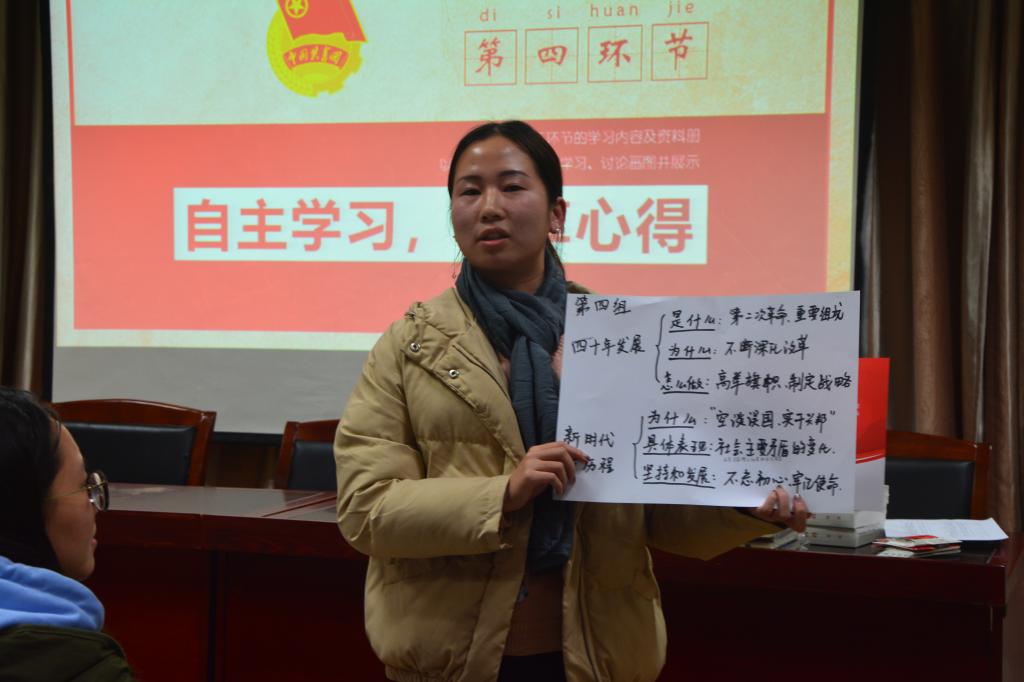 di si huan jie
第四环节
中国共青团
环节的学习内容及资料册
学习、讨论画图并展示
自主学习,
心得
第四组
四十年发展
是什么：第二次革命、重要组成
为什么：不断深化改革
怎么做：高举旗帜、制定战略
新时代
历程
为什么：“空谈误国、实干兴邦”
具体表现：社会主要矛盾的变化.
坚持和发展：不忘初心、牢记使命.